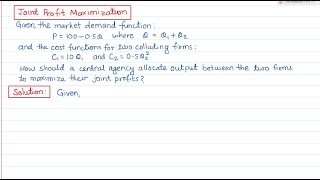 Joint Profit Maximization
Given the market demand function:
P = 100 - 0.5Q where Q = Q₁ + Q₂
and the cost functions for two colluding firms:
C₁ = 10Q₁ and C₂ = 0.5Q₂²
How should a central agency allocate output between the two firms
to maximize their joint profits?
Solution: Given,